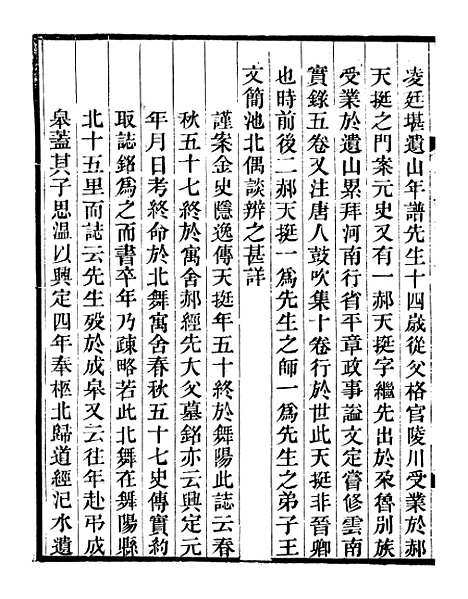 凌廷堪遺山年譜先生十四歲從父格官陵川受業於郝
天挺之門案元史又有一郝天挺字繼先出於朶魯別族
受業於遺山累拜河南行省平章政事謚文定嘗修雲南
實錄五卷又注唐人鼓吹集十卷行於世此天挺非晉卿
也時前後二郝天挺一爲先生之師一爲先生之弟子王
文簡池北偶談辨之甚詳
謹案金史隱逸傳天挺年五十終於舞陽此誌云春
秋五十七終於寓舍郝經先大父墓銘亦云興定元
年月日考終命於北舞寓舍春秋五十七史傳實約
取誌銘爲之而書卒年乃疎略若此北舞在舞陽縣
北十五里而誌云先生歿於成皋又云往年赴弔成
皋蓋其子思溫以興定四年奉柩北歸道經汜水遺